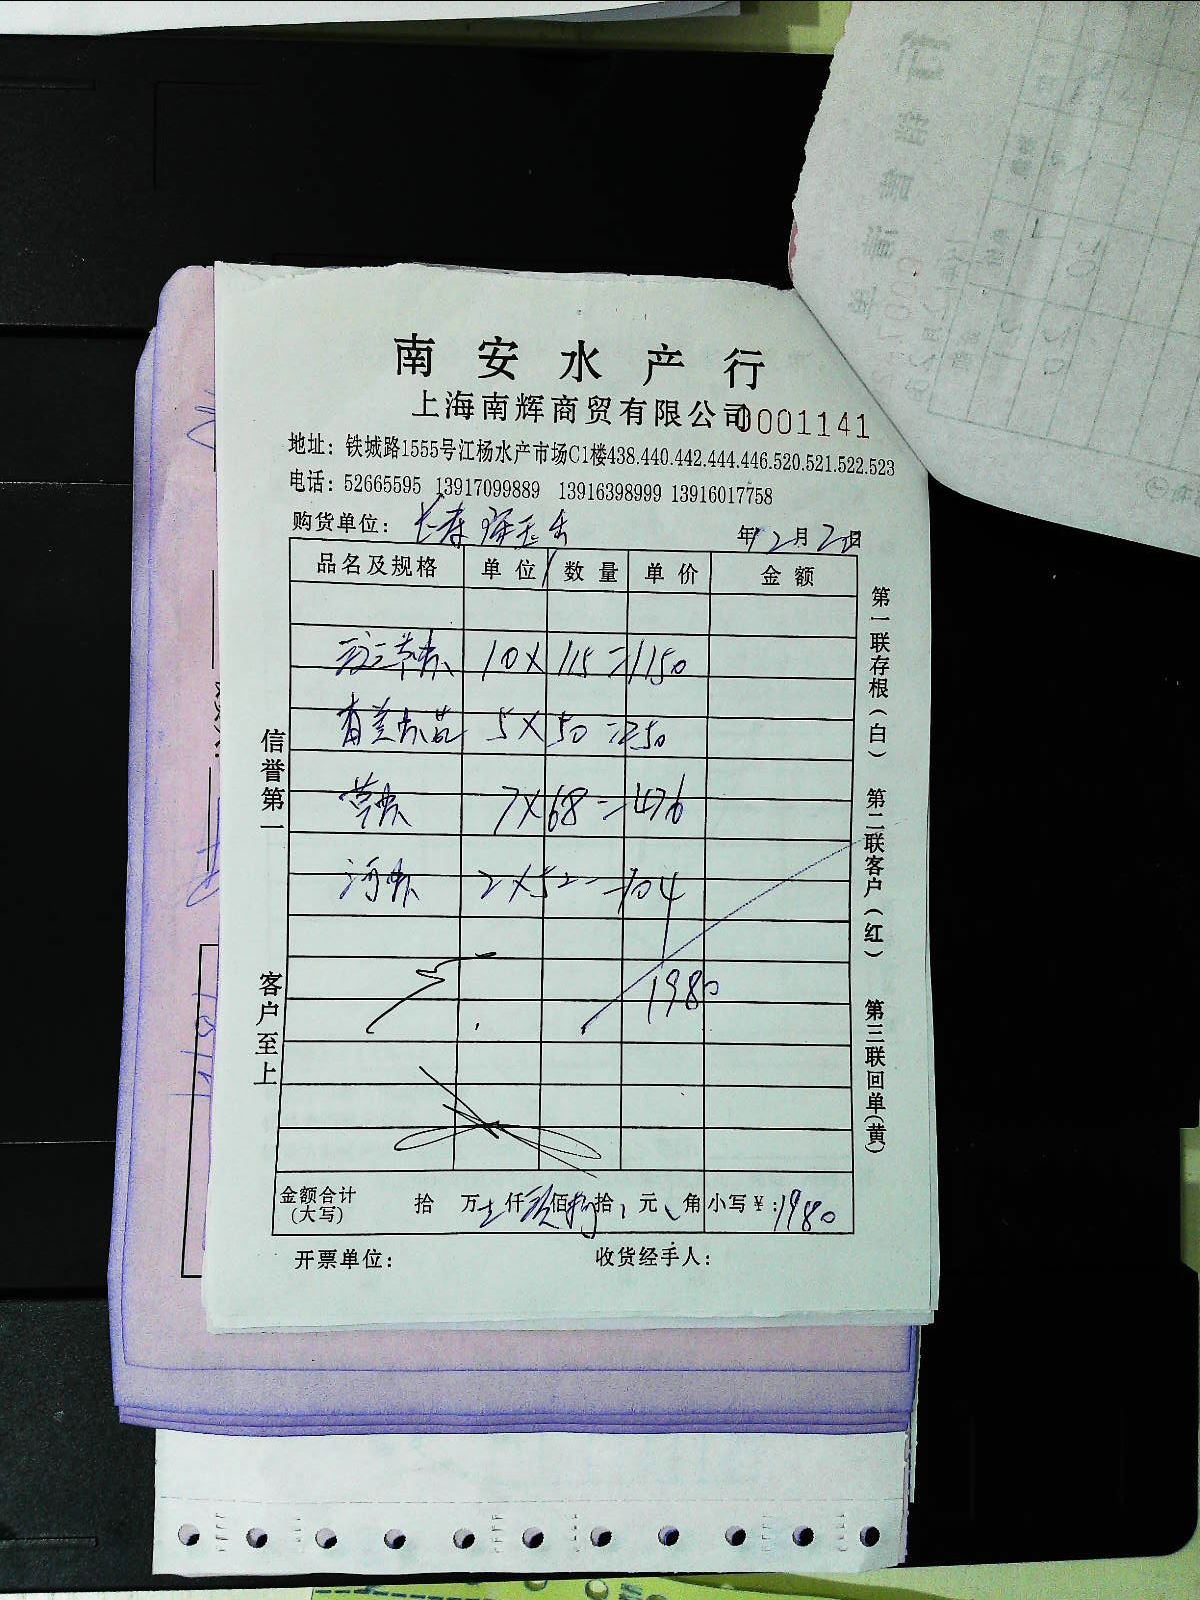 南安水产行
上海南辉商贸有限公司 0001141
地址：铁城路1555号江杨水产市场C1楼438.440.442.444.446.520.521.522.523
电话：52665595 13917099889 13916398999 13916017758
购货单位： 年12月2日
品名及规格 单位 数量 单价 金额
10X 115=1150
5X50=250
草虾 7X68=476
河虾 2X52=104
1980
金额合计(大写) 拾 万 仟 佰 拾 元 角 小写￥：1980
开票单位： 收货经手人：
信誉第一
客户至上
第一联存根(白)
第二联客户(红)
第三联回单(黄)